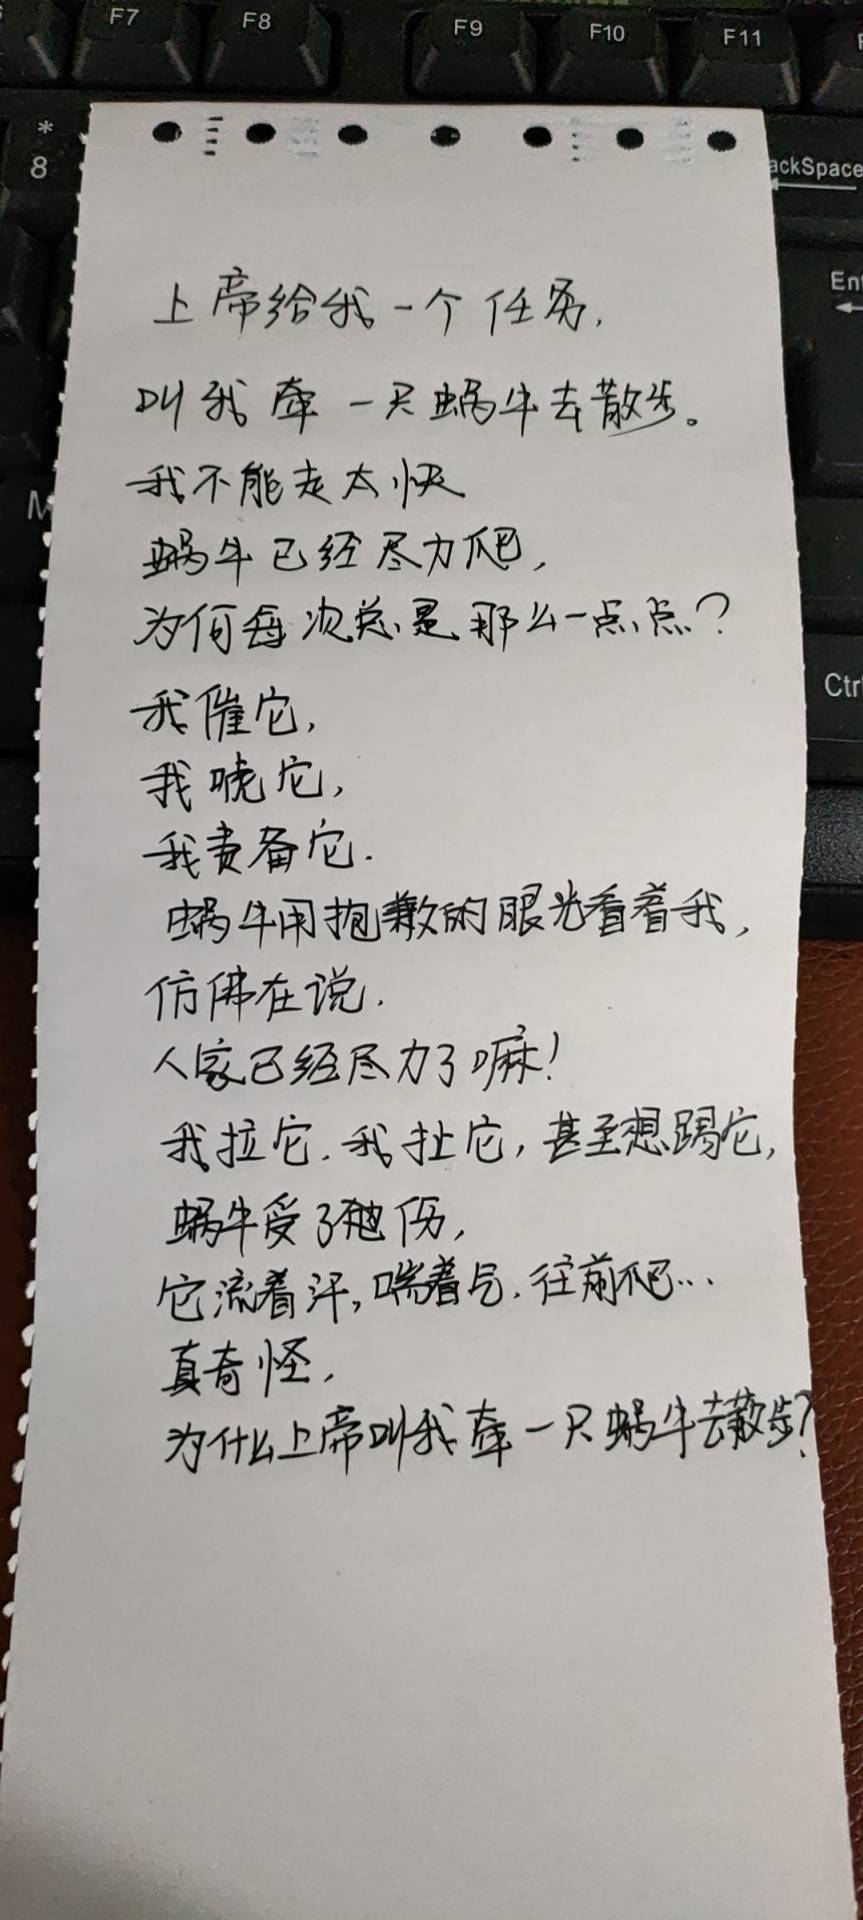 F7 F8 F9 F10 F11
*
8
ackSpace
Ent
Ctr
上帝给我一个任务,
叫我牵一只蜗牛去散步。
我不能走太快
蜗牛已经尽力爬,
为何每次总是那么一点点?
我催它,
我唬它,
我责备它.
蜗牛用抱歉的眼光看着我,
仿佛在说.
人家已经尽力了嘛!
我拉它.我扯它,甚至想踢它,
蜗牛受了伤,
它流着汗,喘着气.往前爬…
真奇怪,
为什么上帝叫我牵一只蜗牛去散步?